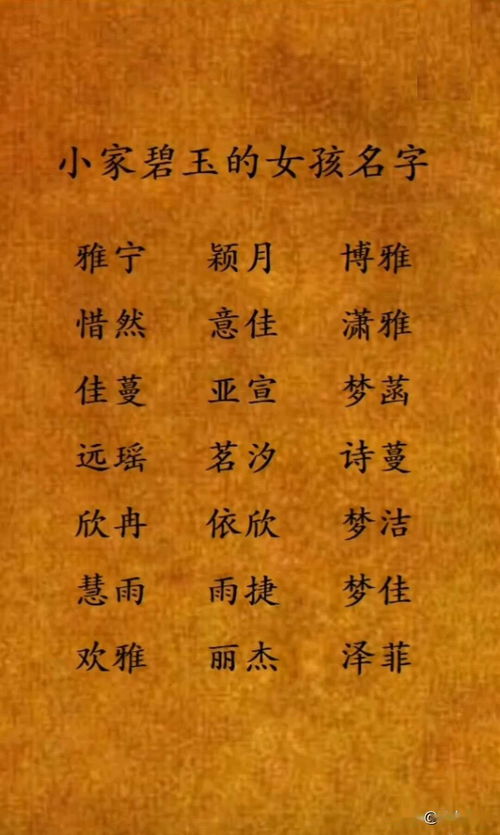 小家碧玉的女孩名字
雅宁 颖月 博雅
惜然 意佳 潇雅
佳蔓 亚宣 梦菡
远瑶 茗汐 诗蔓
欣冉 依欣 梦洁
慧雨 雨捷 梦佳
欢雅 丽杰 泽菲
©